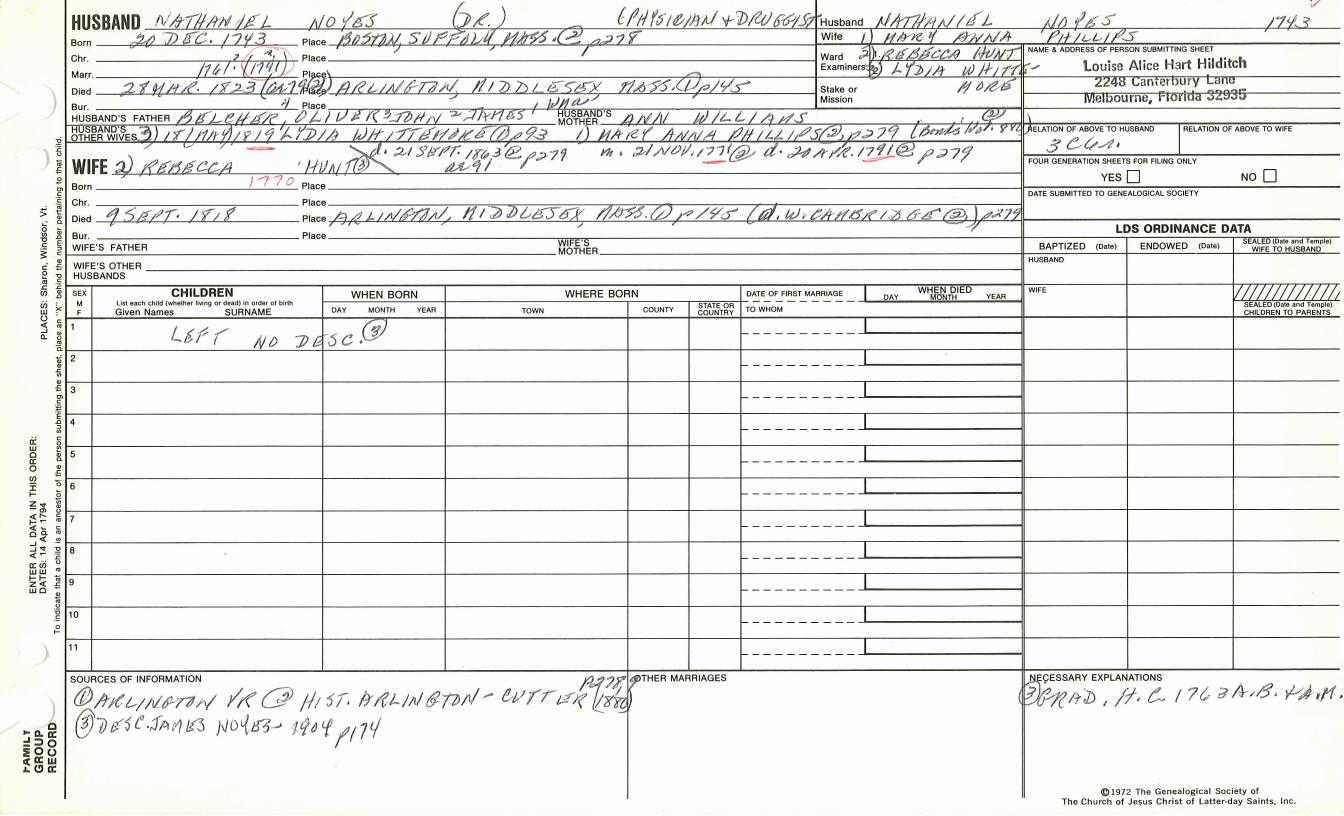 HUSBAND NATHANIEL NOYES (DR.) (PHYSICIAN + DRUGGIST
Born 20 DEC. 1743 Place BOSTON, SUFFOLK, MASS. ② p278
Chr. Place
Marr. 1761? (1791) Place
Died 28 MAR. 1823 Place ARLINGTON, MIDDLESEX MASS. ① p145
Bur. Place
HUSBAND'S FATHER BELCHER, OLIVER 3 JOHN 2 JAMES 1 HUSBAND'S MOTHER ANN WILLIAMS
HUSBAND'S OTHER WIVES 3) 18 (MAY) 1819 LYDIA WHITTEMORE ① p93 1) MARY ANNA PHILLIPS ②, p279
d. 21 SEPT. 1863 ② p279 m. 21 NOV. 1771 ② d. 20 APR. 1791 ② p279
ae 91
WIFE 2) REBECCA HUNT ③
Born 1770 Place
Chr. Place
Died 9 SEPT. 1818 Place ARLINGTON, MIDDLESEX, MASS. ① p145 (d. W. CAMBRIDGE ②) p279
Bur. Place
WIFE'S FATHER WIFE'S MOTHER
WIFE'S OTHER HUSBANDS
Husband NATHANIEL NOYES 1743
Wife 1) MARY ANNA PHILLIPS
Ward Examiners: 2) REBECCA HUNT
3) LYDIA WHITTE-
MORE
Stake or Mission
NAME & ADDRESS OF PERSON SUBMITTING SHEET
Louise Alice Hart Hilditch
2248 Canterbury Lane
Melbourne, Florida 32935
RELATION OF ABOVE TO HUSBAND RELATION OF ABOVE TO WIFE
FOUR GENERATION SHEETS FOR FILING ONLY
YES NO
DATE SUBMITTED TO GENEALOGICAL SOCIETY
LDS ORDINANCE DATA
BAPTIZED (Date) ENDOWED (Date) SEALED (Date and Temple) WIFE TO HUSBAND
HUSBAND
WIFE
SEALED (Date and Temple) CHILDREN TO PARENTS
SEX M F CHILDREN WHEN BORN WHERE BORN DATE OF FIRST MARRIAGE WHEN DIED
List each child (whether living or dead) in order of birth
Given Names SURNAME DAY MONTH YEAR TOWN COUNTY STATE OR COUNTRY TO WHOM DAY MONTH YEAR
1 LEFT NO DESC. ③
2
3
4
5
6
7
8
9
10
11
SOURCES OF INFORMATION
① ARLINGTON VR ② HIST. ARLINGTON - CUTTER (1880) p278,9
③ DESC. JAMES NOYES - 1904 p174
OTHER MARRIAGES
NECESSARY EXPLANATIONS
③ GRAD. H.C. 1763 A.B. + A.M.
©1972 The Genealogical Society of
The Church of Jesus Christ of Latter-day Saints, Inc.
PLACES: Sharon, Windsor, Vt.
ENTER ALL DATA IN THIS ORDER:
DATES: 14 Apr 1794
To indicate that a child is an ancestor of the person submitting the sheet, place an "X" behind the number pertaining to that child.
FAMILY GROUP RECORD